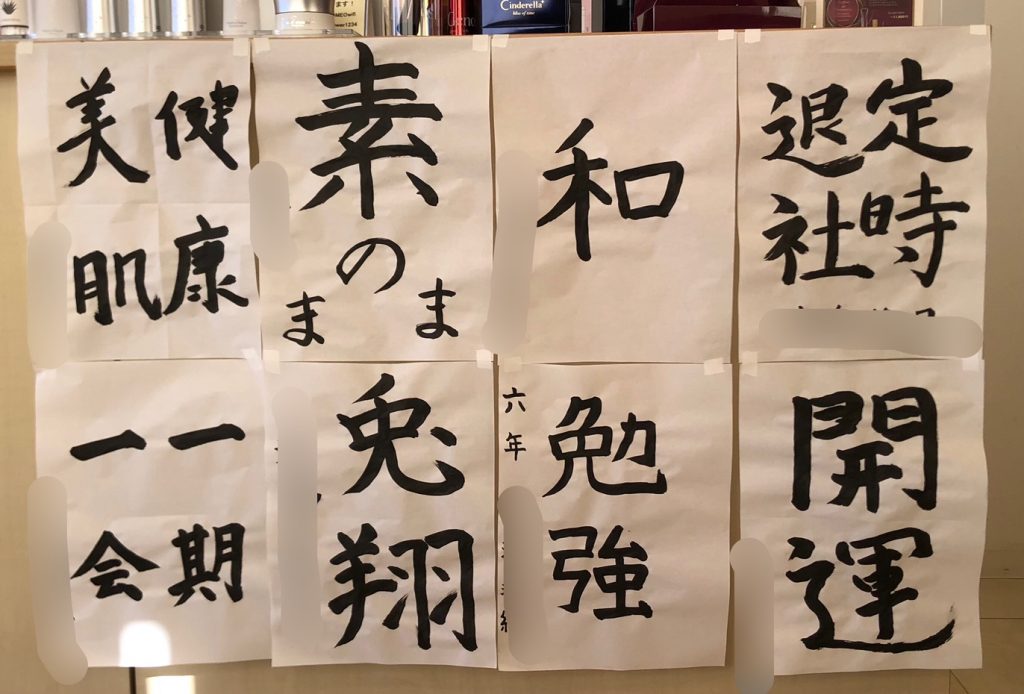 Cinderella
blue of time
定時
退社
和
素
のまま
健康
美肌
開運
勉強
六年
兎翔
一期
一会